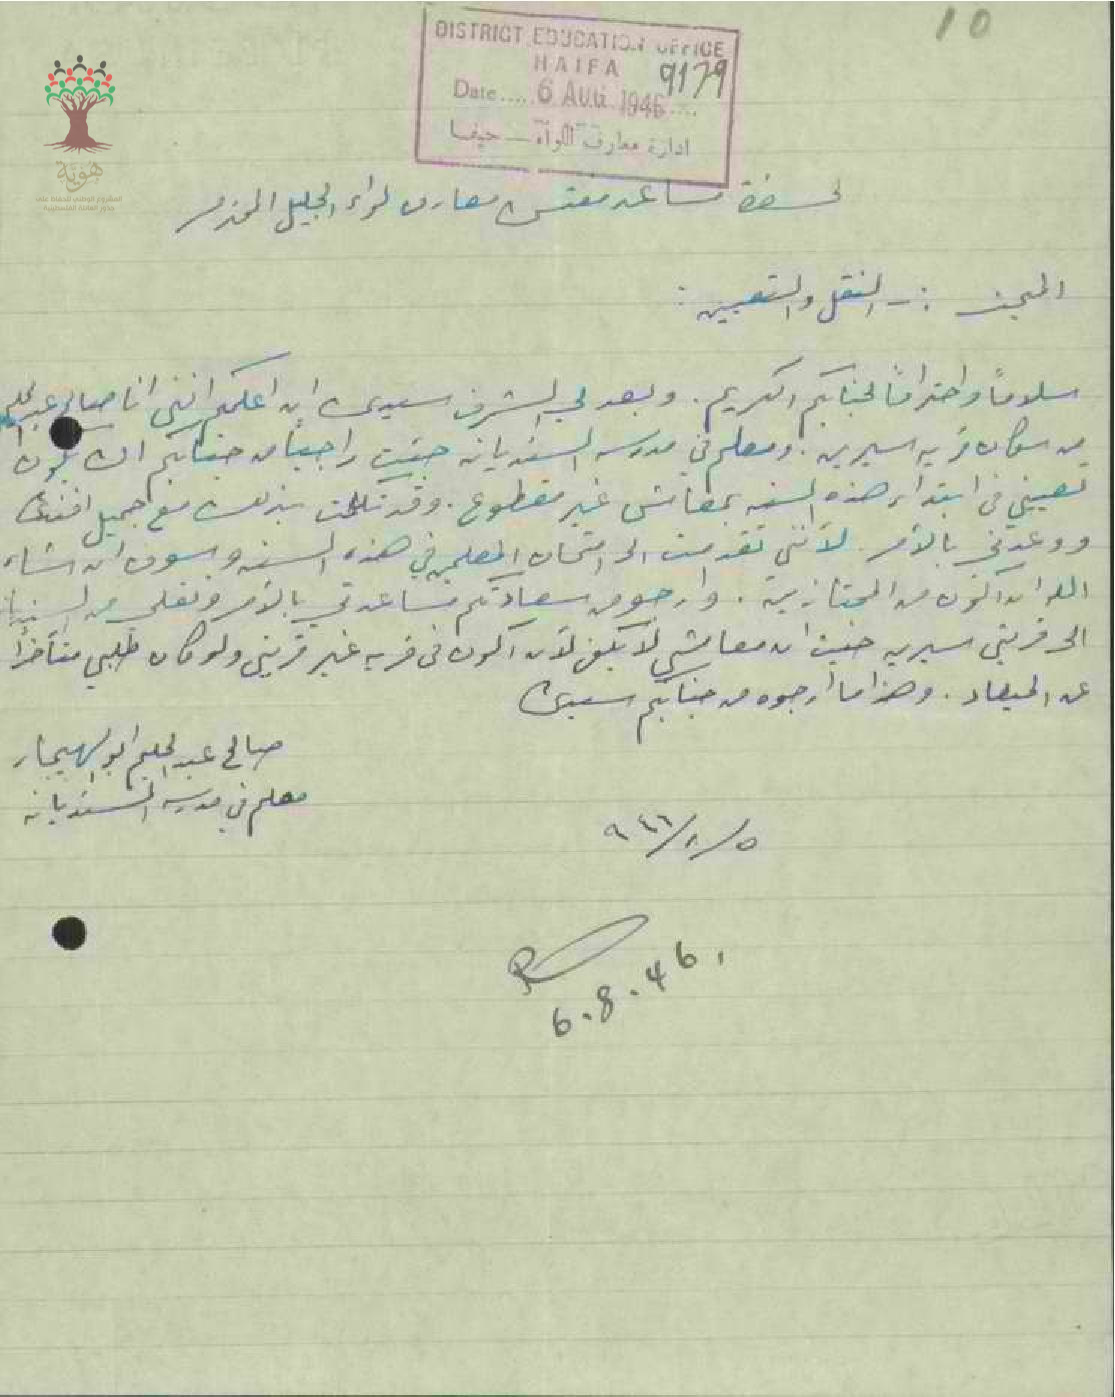 10
DISTRICT EDUCATION OFFICE
HAIFA
9179
Date ..... 6 AUG 1946 ....
ادارة معارف اللواء — حيفا
هوية
المشروع الوطني للحفاظ على
جذور العائلة الفلسطينية
لحضرة مساعد مفتش معارف لواء الجليل المحترم
المبحث :- النقل والتعيين :
سلاماً واحتراماً لجنابكم الكريم . وبعد لي الشرف سيدي ان اعلمكم انني انا صالح عبد الحليم
من سكان قريه سيرين . ومعلم في مدرسه السنديانه جئت راجياً من جنابكم ان يكون
تعييني في ابتداء هذه السنه بمعاش غير مقطوع . وقد تكلمت بذلك مع جميل افندي
ووعدني بالأمر . لأنني تقدمت الى امتحان المعلمين في هذه السنه وسوف ان شاء
الله ان اكون من الممتازين . وارجو من سعادتكم مساعدتي بالأمر ونقلي من السنديانه
الى قريتي سيرين حيث ان معاشي لا يكفي لأن اكون في قريه غير قريتي ولو كان طلبي متأخراً
عن الميعاد . وهذا ما ارجوه من جنابكم سيدي
صالح عبد الحليم ابو الهيجاء
معلم في مدرسه السنديانه
٥/٨/٩٤٦
6.8.46.